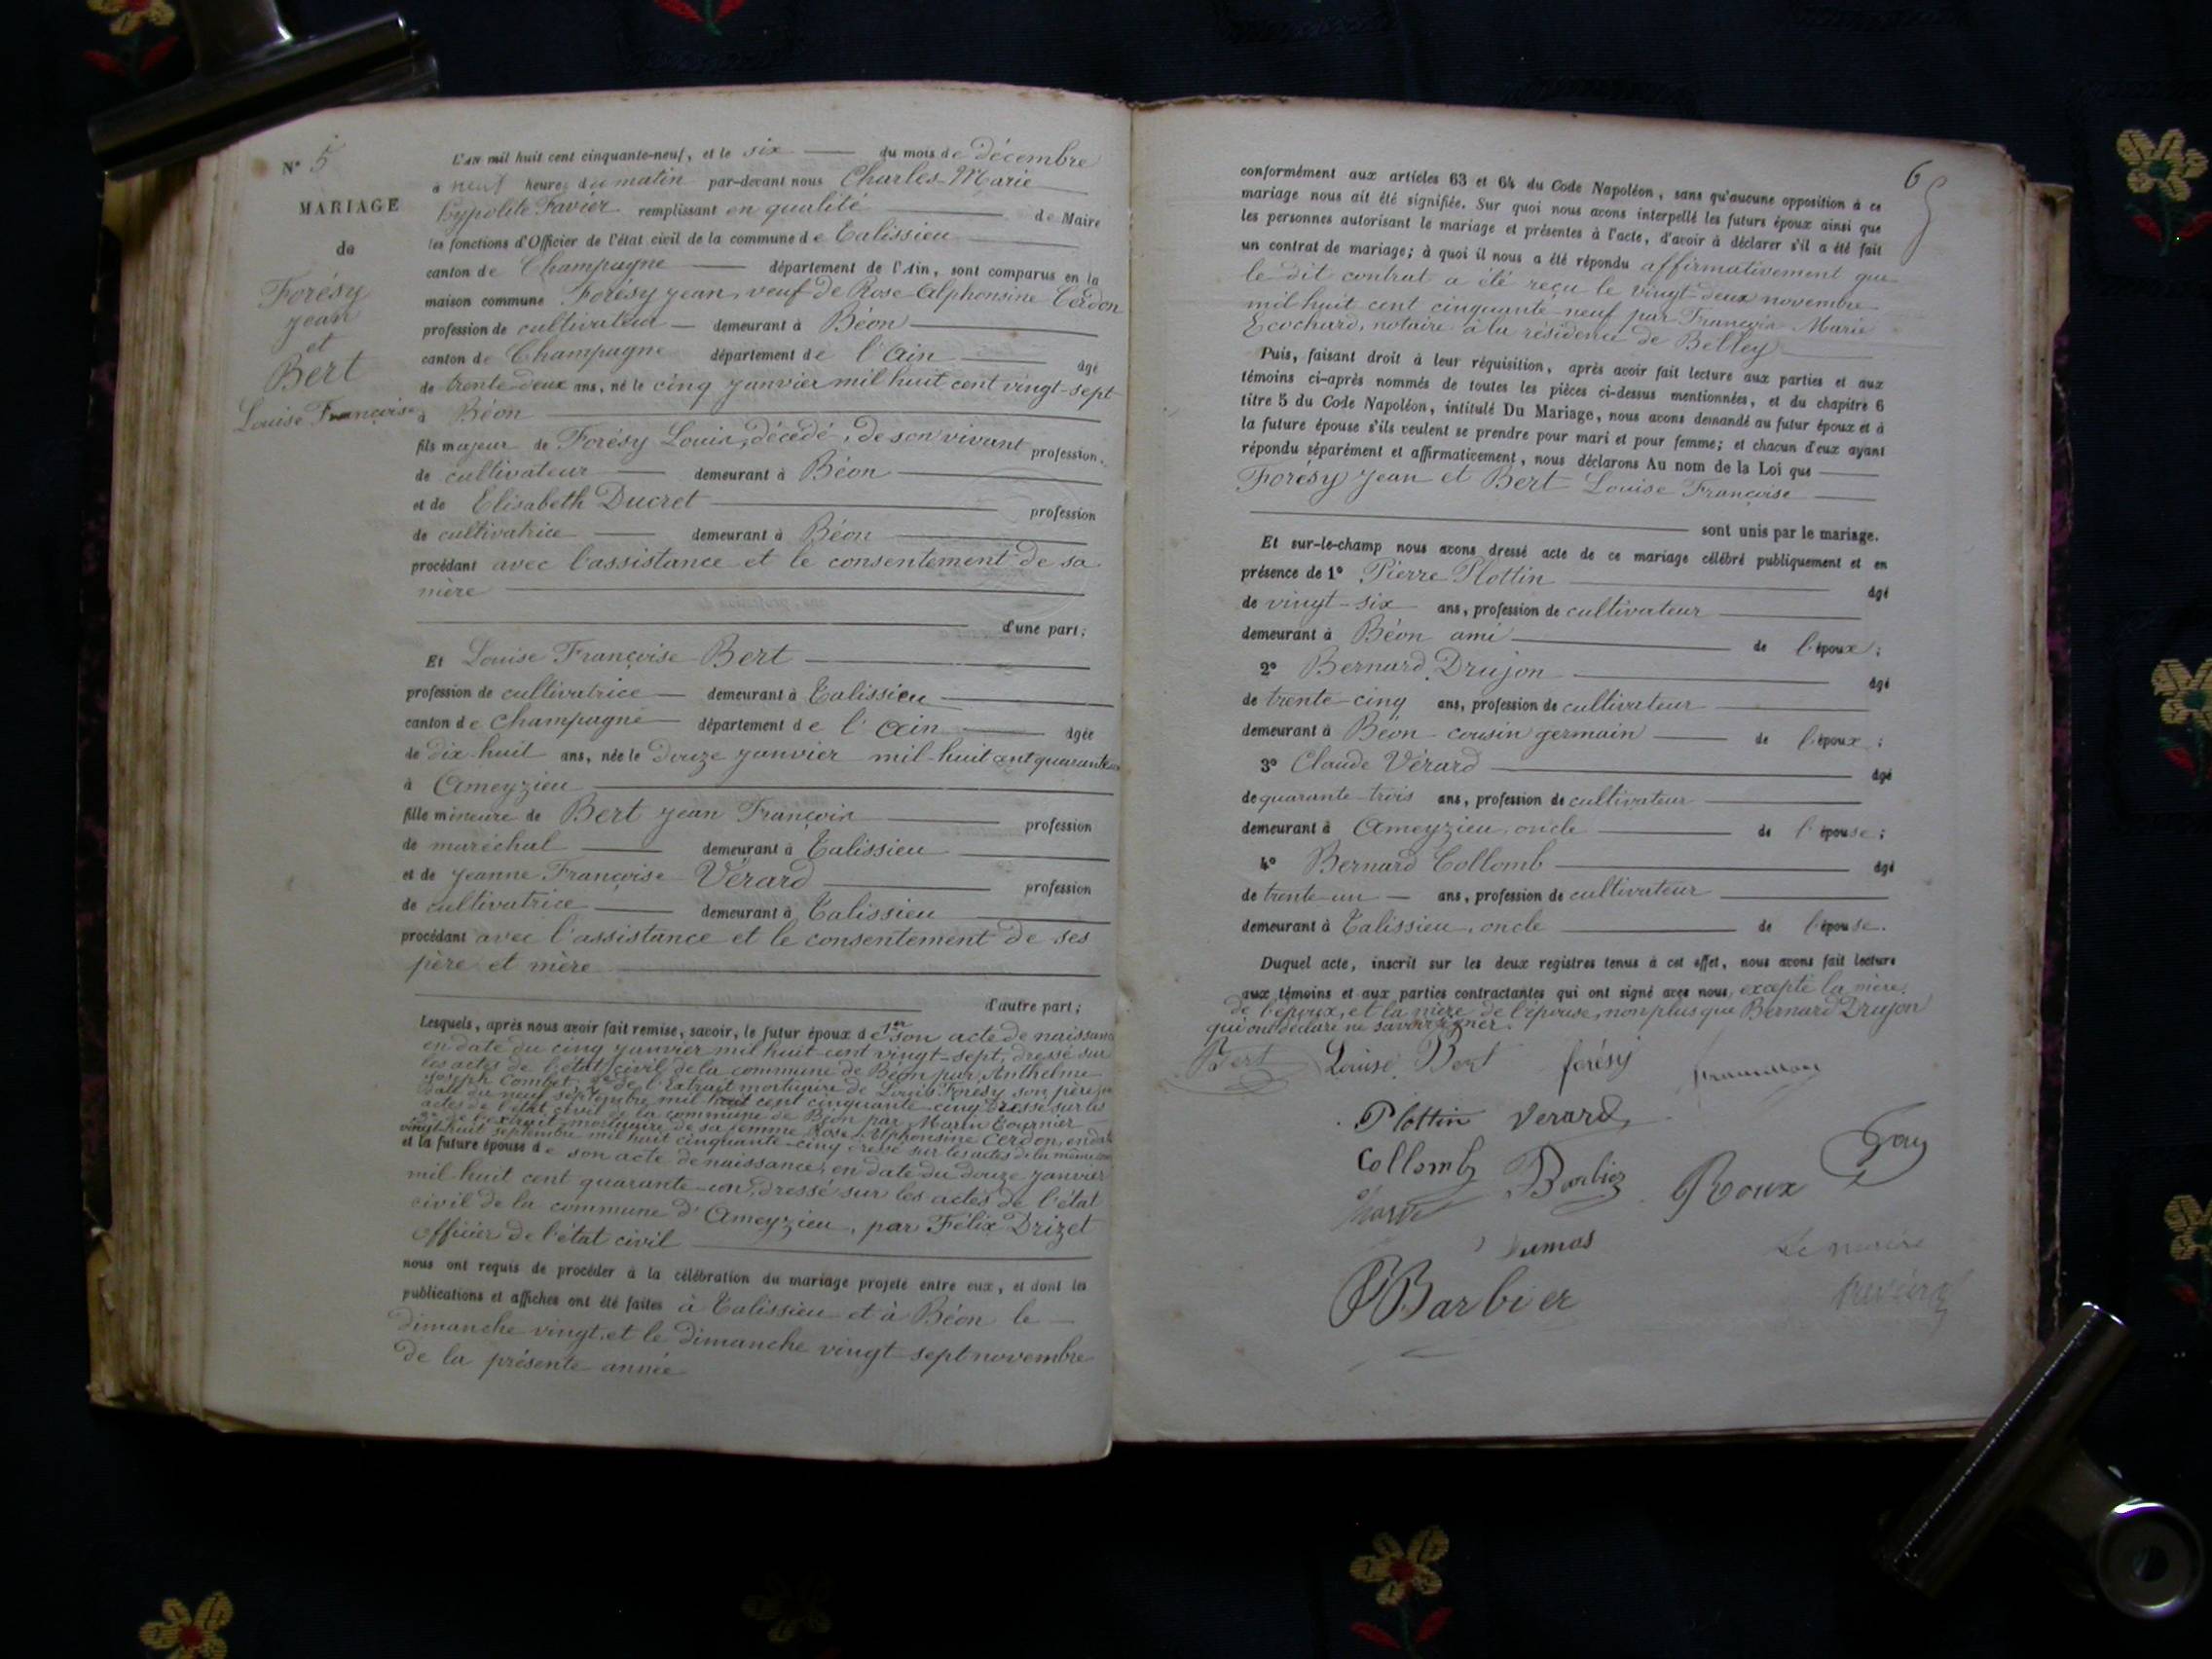 N° 5
MARIAGE
de
Forésy
Jean
et
Bert
Louise Françoise
L'AN mil huit cent cinquante-neuf, et le six du mois de décembre
à neuf heures du matin par-devant nous Charles-Marie
hypolite Favier remplissant en qualité de Maire
les fonctions d'Officier de l'état civil de la commune de Talissieu
canton de Champagne département de l'Ain, sont comparus en la
maison commune Forésy Jean, veuf de Rose Alphonsine Cerdon
profession de cultivateur demeurant à Béon
canton de Champagne département de l'Ain âgé
de trente-deux ans, né le cinq janvier mil huit cent vingt-sept
à Béon
fils majeur de Forésy Louis, décédé, de son vivant profession
de cultivateur demeurant à Béon
et de Elisabeth Ducret profession
de cultivatrice demeurant à Béon
procédant avec l'assistance et le consentement de sa
mère
d'une part;
Et Louise Françoise Bert
profession de cultivatrice demeurant à Talissieu
canton de Champagne département de l'Ain âgée
de dix-huit ans, née le douze janvier mil-huit cent quarante
à Ameyzieu
fille mineure de Bert Jean François profession
de maréchal demeurant à Talissieu
et de Jeanne Françoise Vérard profession
de cultivatrice demeurant à Talissieu
procédant avec l'assistance et le consentement de ses
père et mère
d'autre part;
Lesquels, après nous avoir fait remise, savoir, le futur époux de 1er son acte de naissance
en date du cinq janvier mil huit cent vingt-sept, dressé sur
les actes de l'état civil de la commune de Béon par Anthelme
Joseph Combet. 2e de l'Extrait mortuaire de Louis Forésy son père,
date du neuf septembre mil huit cent cinquante-cinq dressé sur les
actes de l'état civil de la commune de Béon par Marin Tournier
3e de l'extrait mortuaire de sa femme Rose Alphonsine Cerdon, en date
vingt-huit septembre mil huit cinquante-cinq dressé sur les actes de la même
et la future épouse de son acte de naissance, en date du douze janvier
mil huit cent quarante-un, dressé sur les actes de l'état
civil de la commune d'Ameyzieu, par Félix Drizet
officier de l'état civil
nous ont requis de procéder à la célébration du mariage projeté entre eux, et dont les
publications et affiches ont été faites à Talissieu et à Béon le
dimanche vingt, et le dimanche vingt-sept novembre
de la présente année
6
conformément aux articles 63 et 64 du Code Napoléon, sans qu'aucune opposition à ce
mariage nous ait été signifiée. Sur quoi nous avons interpellé les futurs époux ainsi que
les personnes autorisant le mariage et présentes à l'acte, d'avoir à déclarer s'il a été fait
un contrat de mariage; à quoi il nous a été répondu affirmativement que
le dit contrat a été reçu le vingt-deux novembre
mil huit cent cinquante-neuf par François Marie
Ecochard, notaire à la résidence de Belley
Puis, faisant droit à leur réquisition, après avoir fait lecture aux parties et aux
témoins ci-après nommés de toutes les pièces ci-dessus mentionnées, et du chapitre 6
titre 5 du Code Napoléon, intitulé Du Mariage, nous avons demandé au futur époux et à
la future épouse s'ils veulent se prendre pour mari et pour femme; et chacun d'eux ayant
répondu séparément et affirmativement, nous déclarons Au nom de la Loi que
Forésy Jean et Bert Louise Françoise
sont unis par le mariage.
Et sur-le-champ nous avons dressé acte de ce mariage célébré publiquement et en
présence de 1° Pierre Plottin âgé
de vingt-six ans, profession de cultivateur
demeurant à Béon ami de l'époux;
2° Bernard Drujon âgé
de trente-cinq ans, profession de cultivateur
demeurant à Béon cousin germain de l'époux;
3° Claude Vérard âgé
de quarante-trois ans, profession de cultivateur
demeurant à Ameyzieu, oncle de l'épouse;
4° Bernard Collomb âgé
de trente-un ans, profession de cultivateur
demeurant à Talissieu, oncle de l'épouse.
Duquel acte, inscrit sur les deux registres tenus à cet effet, nous avons fait lecture
aux témoins et aux parties contractantes qui ont signé avec nous, excepté la mère,
de l'époux, et la mère de l'épouse, non plus que Bernard Drujon
qui ont déclaré ne savoir signer.
Bert Louise Bert forésy
Plottin Verard
Collomb Barbier Roux Gay
Dumas Le maire
Barbier